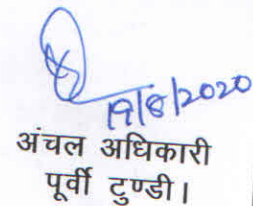 19/8/2020
अंचल अधिकारी
पूर्वी टुण्डी।